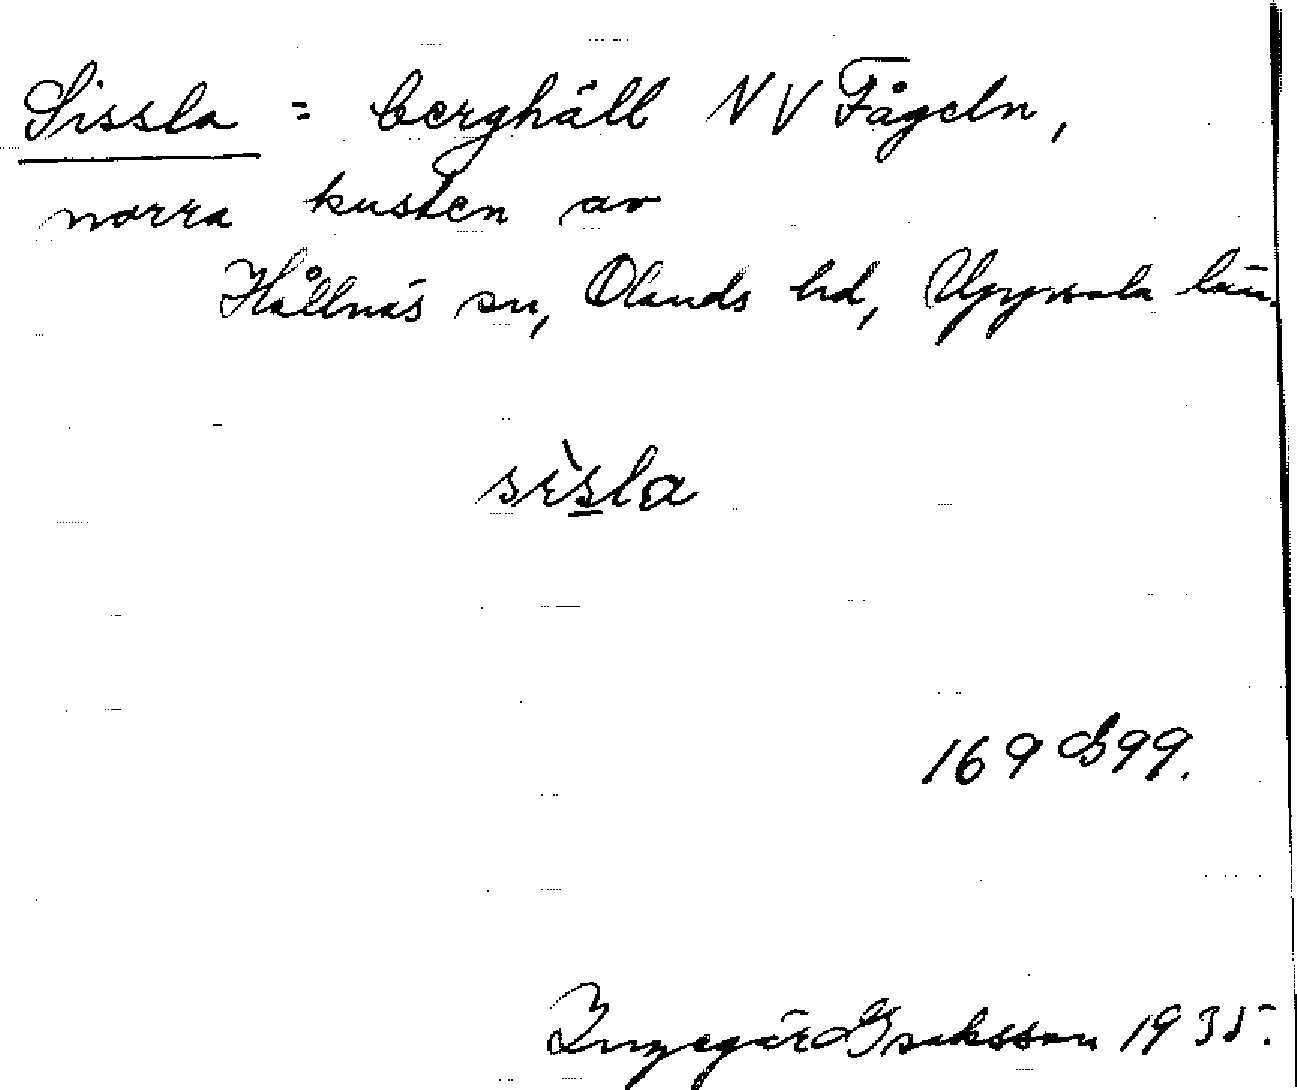 Sissla = berghäll NV Fågeln,
norra kusten av
Hållnäs sn, Olands hd, Uppsala län.
sìsla
169 B 99.
Ingegär Isaksson 1935.